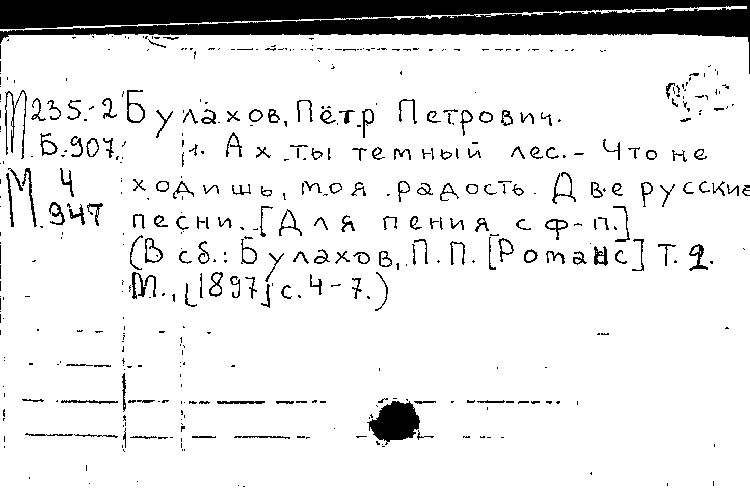 М 235-2 Булахов, Пётр Петрович.
Б.907. 1. Ах ты темный лес. - Что не
М 4 ходишь, моя радость. Две русские
947 песни. [Для пения с ф-п.]
(В сб.: Булахов, П.П. [Романс] Т. 2.
М., [1897] с. 4-7.)